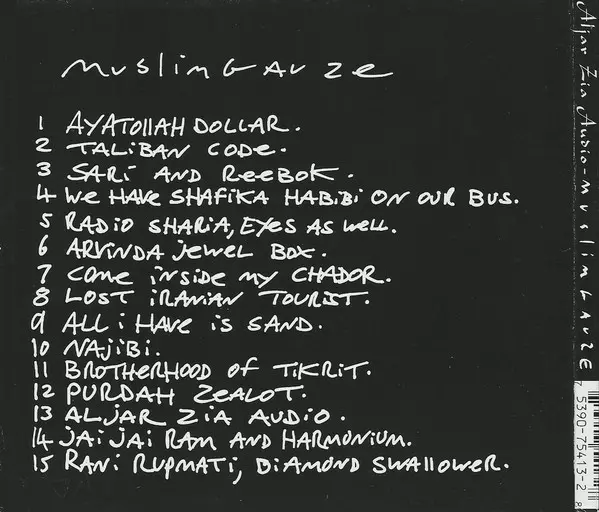 muslimgauze
1 AYATOllAH DOLLAR.
2 TALiBAN CODe.
3 SARi AND ReeBOK.
4 We HAVE SHAFiKA HABiBi ON OUR BUS.
5 RADiO SHARiA, EYES AS WeLL.
6 ARViNDA JeWEL BOX.
7 COMe iNSiDe MY CHADOR.
8 LOST iRANiAN TOURiST.
9 ALL i HAVE iS SAND.
10 NAJiBi.
11 BROTHERHOOD OF TiKRiT.
12 PURDAH ZeALOT.
13 ALJAR ZiA AUDiO.
14 JAi JAi RAM AND HARMONiUM.
15 RANi RUPMATi, DiAMOND SWALLOWER.
Aljar Zia Audio - muslimgauze
7 5390-75413-2 8